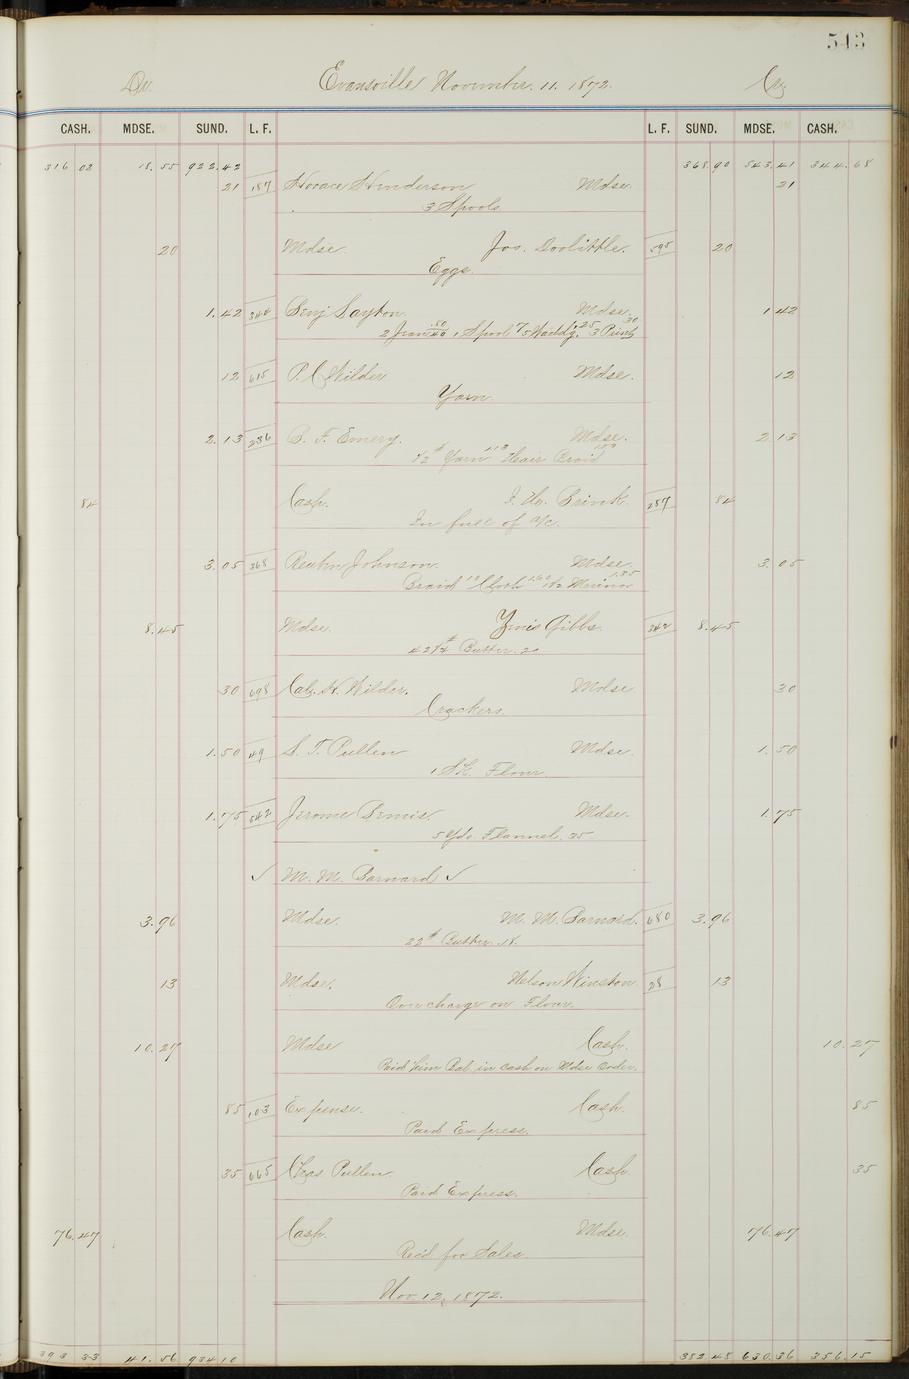 543
Dr. Evansville November. 11. 1872. Cr.
CASH. MDSE. SUND. L. F. L. F. SUND. MDSE. CASH.
316 02 18.55 922.42 368.90 543.41 344.68
21 187 Horace Henderson Mdse. 21
3 Spools
20 Mdse. Jos. Doolittle. 595 20
Eggs.
1.42 344 Benj Layton. Mdse. 1 42
2 Jean .80/40 1 Spool 7/5 Wadd'g. 25 3 Print 30
12 615 P. C Wilder Mdse. 12
Yarn.
2.13 236 B. F. Emery. Mdse. 2.13
1/2# Yarn 1.13 Hair Braid 1.00
84 Cash. F. W. Brink. 287 84
In full of a/c.
3.05 368 Reubn Johnson. Mdse. 3.05
Braid 10 Cloth 1.60 1/2 Merino 1.35
8.45 Mdse. Gibbs. 342 8.45
42 1/4# Butter. 20
30 698 Cal. N. Wilder. Mdse 30
Crackers.
1.50 49 S. T. Pullen Mdse. 1.50
1 Sk. Flour.
1.75 542 Jerome Bemis. Mdse. 1.75
5 Yds. Flannel. 35
✓ M. M. Barnard ✓
3.96 Mdse. M. M. Barnard. 680 3.96
22# Butter. 18.
13 Mdse. Nelson Winston 28 13
Overcharge on Flour.
10.27 Mdse Cash. 10.27
Paid him Bal in cash on Mdse Order.
85 103 Expense. Cash. 85
Paid Express.
35 665 Chas. Pullen. Cash 35
Paid Express.
76.47 Cash. Mdse. 76.47
Rec'd for Sales.
Nov. 12, 1872.
393 33 41.56 934 10 382 48 630.36 356.15